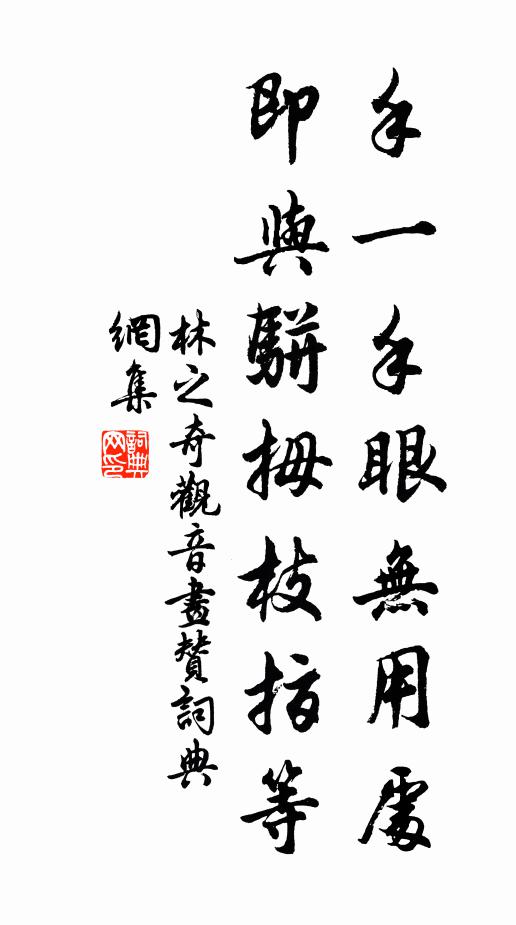 手一手眼無用處
即與駢拇枝指等
林之奇觀音畫贊詞典
網集
詞典
网印